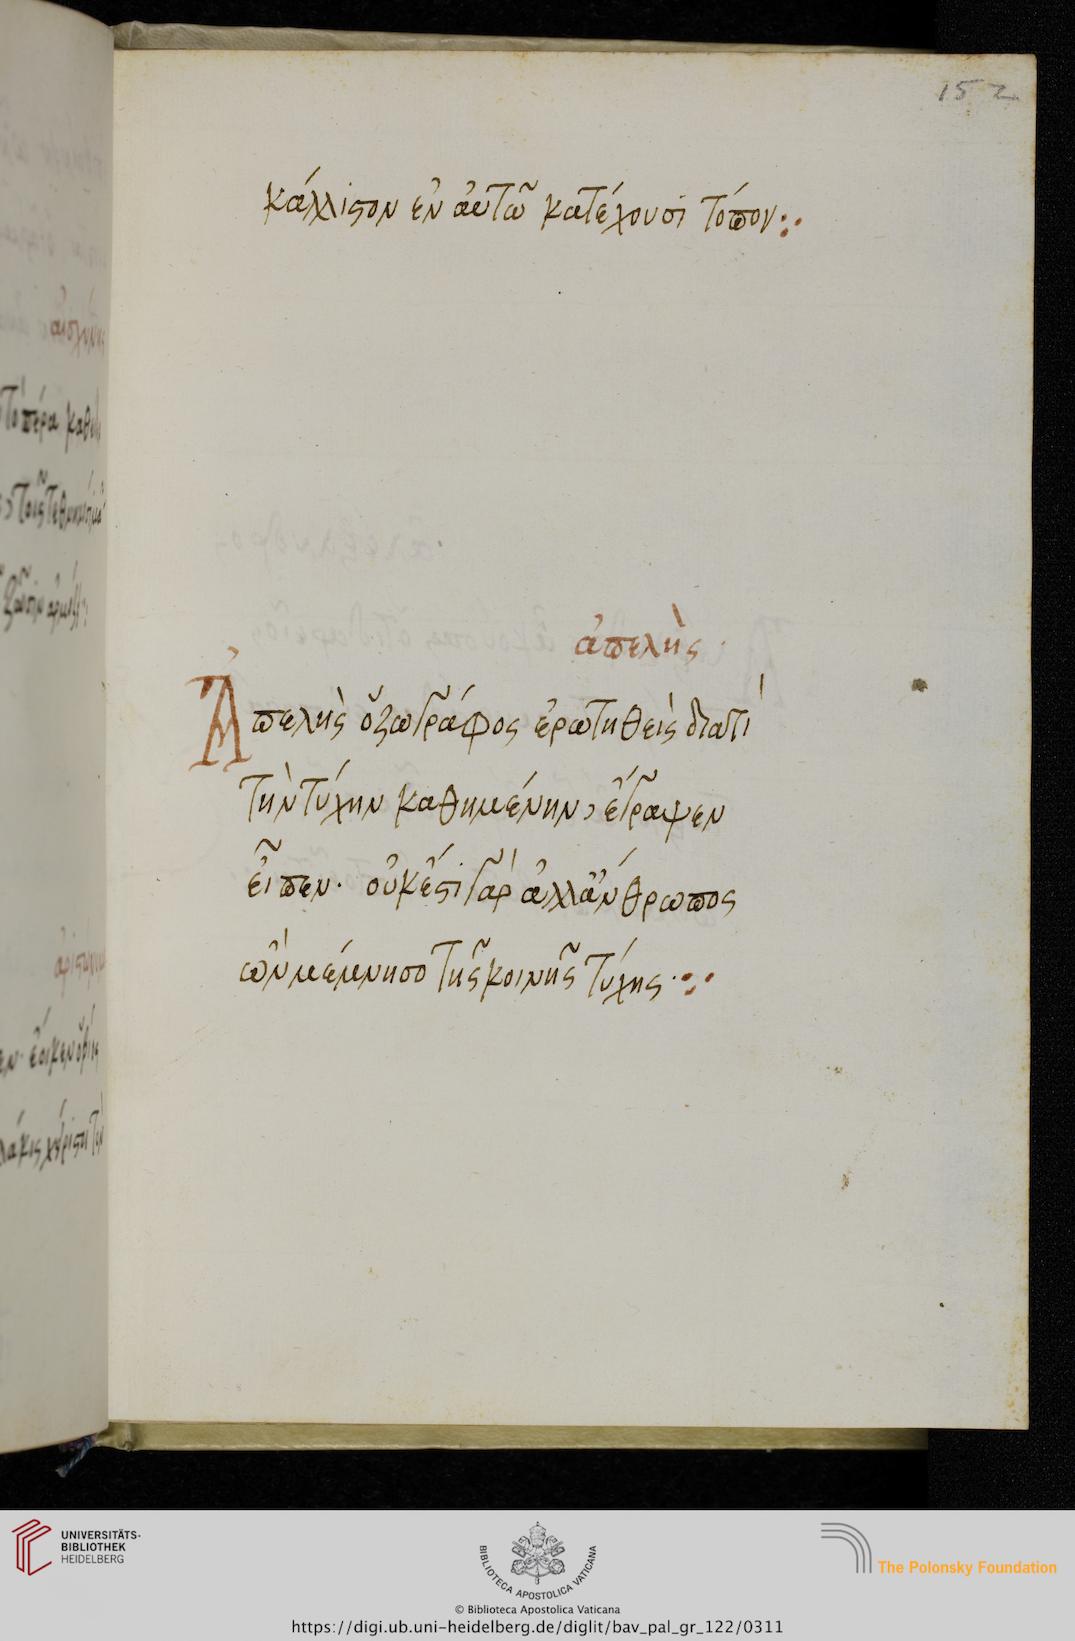 152
κάλλιστον ἐν ἀυτῶ κατέχουσι τόπον:·
ἀπελὴς
Ἀπελὴς ὁ ζωγράφος ἐρωτηθεὶς διατί
τὴν τύχην καθημένην, ἔγραψεν
εἶπεν· οὐκ ἕστι γὰρ ἀλλ' ἄνθρωπος
ὢν μέμνησο τῆς κοινῆς τύχης·:·
UNIVERSITÄTS-
BIBLIOTHEK
HEIDELBERG
BIBLIOTECA APOSTOLICA VATICANA
The Polonsky Foundation
© Biblioteca Apostolica Vaticana
https://digi.ub.uni-heidelberg.de/diglit/bav_pal_gr_122/0311